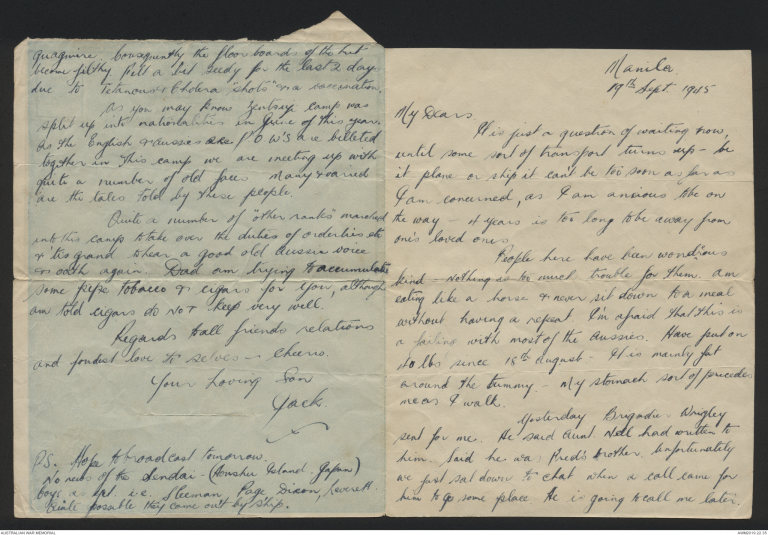 Manila.
19th Sept. 1945
My Dears
It is just a question of waiting now,
until some sort of transport turns up - be
it plane or ship it cant be too soon as far as
I am concerned, as I am anxious to be on
the way - 4 years is too long to be away from
one's loved ones.
People here have been wondrous
kind - nothing is too much trouble for them. am
eating like a horse & never sit down to a meal
without having a repeat I'm afraid that this is
a failing with most of the Aussies. Have put on
40 lbs since 15th August - It is mainly fat
around the tummy - my stomach sort of precedes
me as I walk.
Yesterday Brigadier Wrigley
sent for me. He said Aunt. Nell had written to
him. Said he was Fred's brother. Unfortunately
we just sat down to chat when a call came for
him to go some place. He is going to call me later.
quagmire. Consequently the floor boards of the hut
become filthy felt a bit seedy for the last 2 days
due to Tetanus & Cholera "shots" & a vaccination.
As you may know Zentsuji camp was
split up into nationalities in June of this year.
As the English & Aussies P O W'S are billeted
together in this camp we are meeting up with
quite a number of old faces. Many & varied
are the tales told by these people.
Quite a number of "other ranks" marched
into this camp to take over the duties of orderlies etc
& 'tis grand to hear a good old Aussie voice
& oath again. Dad am trying to accumulate
some pipe tobacco & cigars for you, although
am told cigars do not keep very well.
Regards to all friends relations
and fondest love to selves - Cheerio.
Your loving Son
Jack.
P.S. Hope to broadcast tomorrow.
No news of the Sendai - (Honshu Island. Japan)
boys as yet. i.e. Sleeman, Page, Dixon, Leverett.
Quite possible they came out by ship.
AUSTRALIAN WAR MEMORIAL
AWM2019.22.15